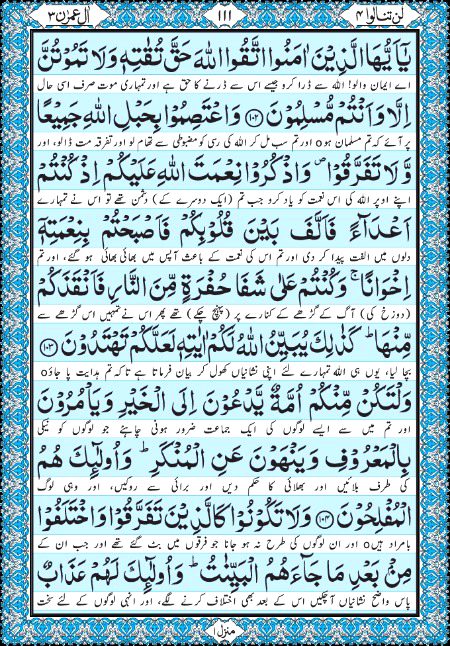 لن تنالوا ۴
۱۱۱
اٰل عمرٰن ۳
يٰۤاَيُّهَا الَّذِيْنَ اٰمَنُوا اتَّقُوا اللّٰهَ حَقَّ تُقٰتِهٖ وَلَا تَمُوْتُنَّ
اے ایمان والو! اللہ سے ڈرا کرو جیسے اس سے ڈرنے کا حق ہے اور تمہاری موت صرف اسی حال
اِلَّا وَاَنْتُمْ مُّسْلِمُوْنَ ﴿۱۰۲﴾ وَاعْتَصِمُوْا بِحَبْلِ اللّٰهِ جَمِيْعًا
پر آئے کہ تم مسلمان ہو o اور تم سب مل کر اللہ کی رسی کو مضبوطی سے تھام لو اور تفرقہ مت ڈالو، اور
وَّلَا تَفَرَّقُوْا ۪ وَاذْكُرُوْا نِعْمَتَ اللّٰهِ عَلَيْكُمْ اِذْ كُنْتُمْ
اپنے اوپر اللہ کی اس نعمت کو یاد کرو جب تم (ایک دوسرے کے) دشمن تھے تو اس نے تمہارے
اَعْدَآءً فَاَلَّفَ بَيْنَ قُلُوْبِكُمْ فَاَصْبَحْتُمْ بِنِعْمَتِهٖۤ
دلوں میں الفت پیدا کر دی اور تم اس کی نعمت کے باعث آپس میں بھائی بھائی ہو گئے، اور تم
اِخْوَانًا ۚ وَكُنْتُمْ عَلٰى شَفَا حُفْرَةٍ مِّنَ النَّارِ فَاَنْقَذَكُمْ
(دوزخ کی) آگ کے گڑھے کے کنارے پر (پہنچ چکے) تھے پھر اس نے تمہیں اس گڑھے سے
مِّنْهَا ؕ كَذٰلِكَ يُبَيِّنُ اللّٰهُ لَكُمْ اٰيٰتِهٖ لَعَلَّكُمْ تَهْتَدُوْنَ ﴿۱۰۳﴾
بچا لیا، یوں ہی اللہ تمہارے لئے اپنی نشانیاں کھول کر بیان فرماتا ہے تاکہ تم ہدایت پا جاؤ o
وَلْتَكُنْ مِّنْكُمْ اُمَّةٌ يَّدْعُوْنَ اِلَى الْخَيْرِ وَيَاْمُرُوْنَ
اور تم میں سے ایسے لوگوں کی ایک جماعت ضرور ہونی چاہئے جو لوگوں کو نیکی
بِالْمَعْرُوْفِ وَيَنْهَوْنَ عَنِ الْمُنْكَرِ ؕ وَاُولٰٓئِكَ هُمُ
کی طرف بلائیں اور بھلائی کا حکم دیں اور برائی سے روکیں، اور وہی لوگ
الْمُفْلِحُوْنَ ﴿۱۰۴﴾ وَلَا تَكُوْنُوْا كَالَّذِيْنَ تَفَرَّقُوْا وَاخْتَلَفُوْا
بامراد ہیں o اور ان لوگوں کی طرح نہ ہو جانا جو فرقوں میں بٹ گئے تھے اور جب ان کے
مِنْۢ بَعْدِ مَا جَآءَهُمُ الْبَيِّنٰتُ ؕ وَاُولٰٓئِكَ لَهُمْ عَذَابٌ
پاس واضح نشانیاں آ چکیں اس کے بعد بھی اختلاف کرنے لگے، اور انہی لوگوں کے لئے سخت
منزل ۱